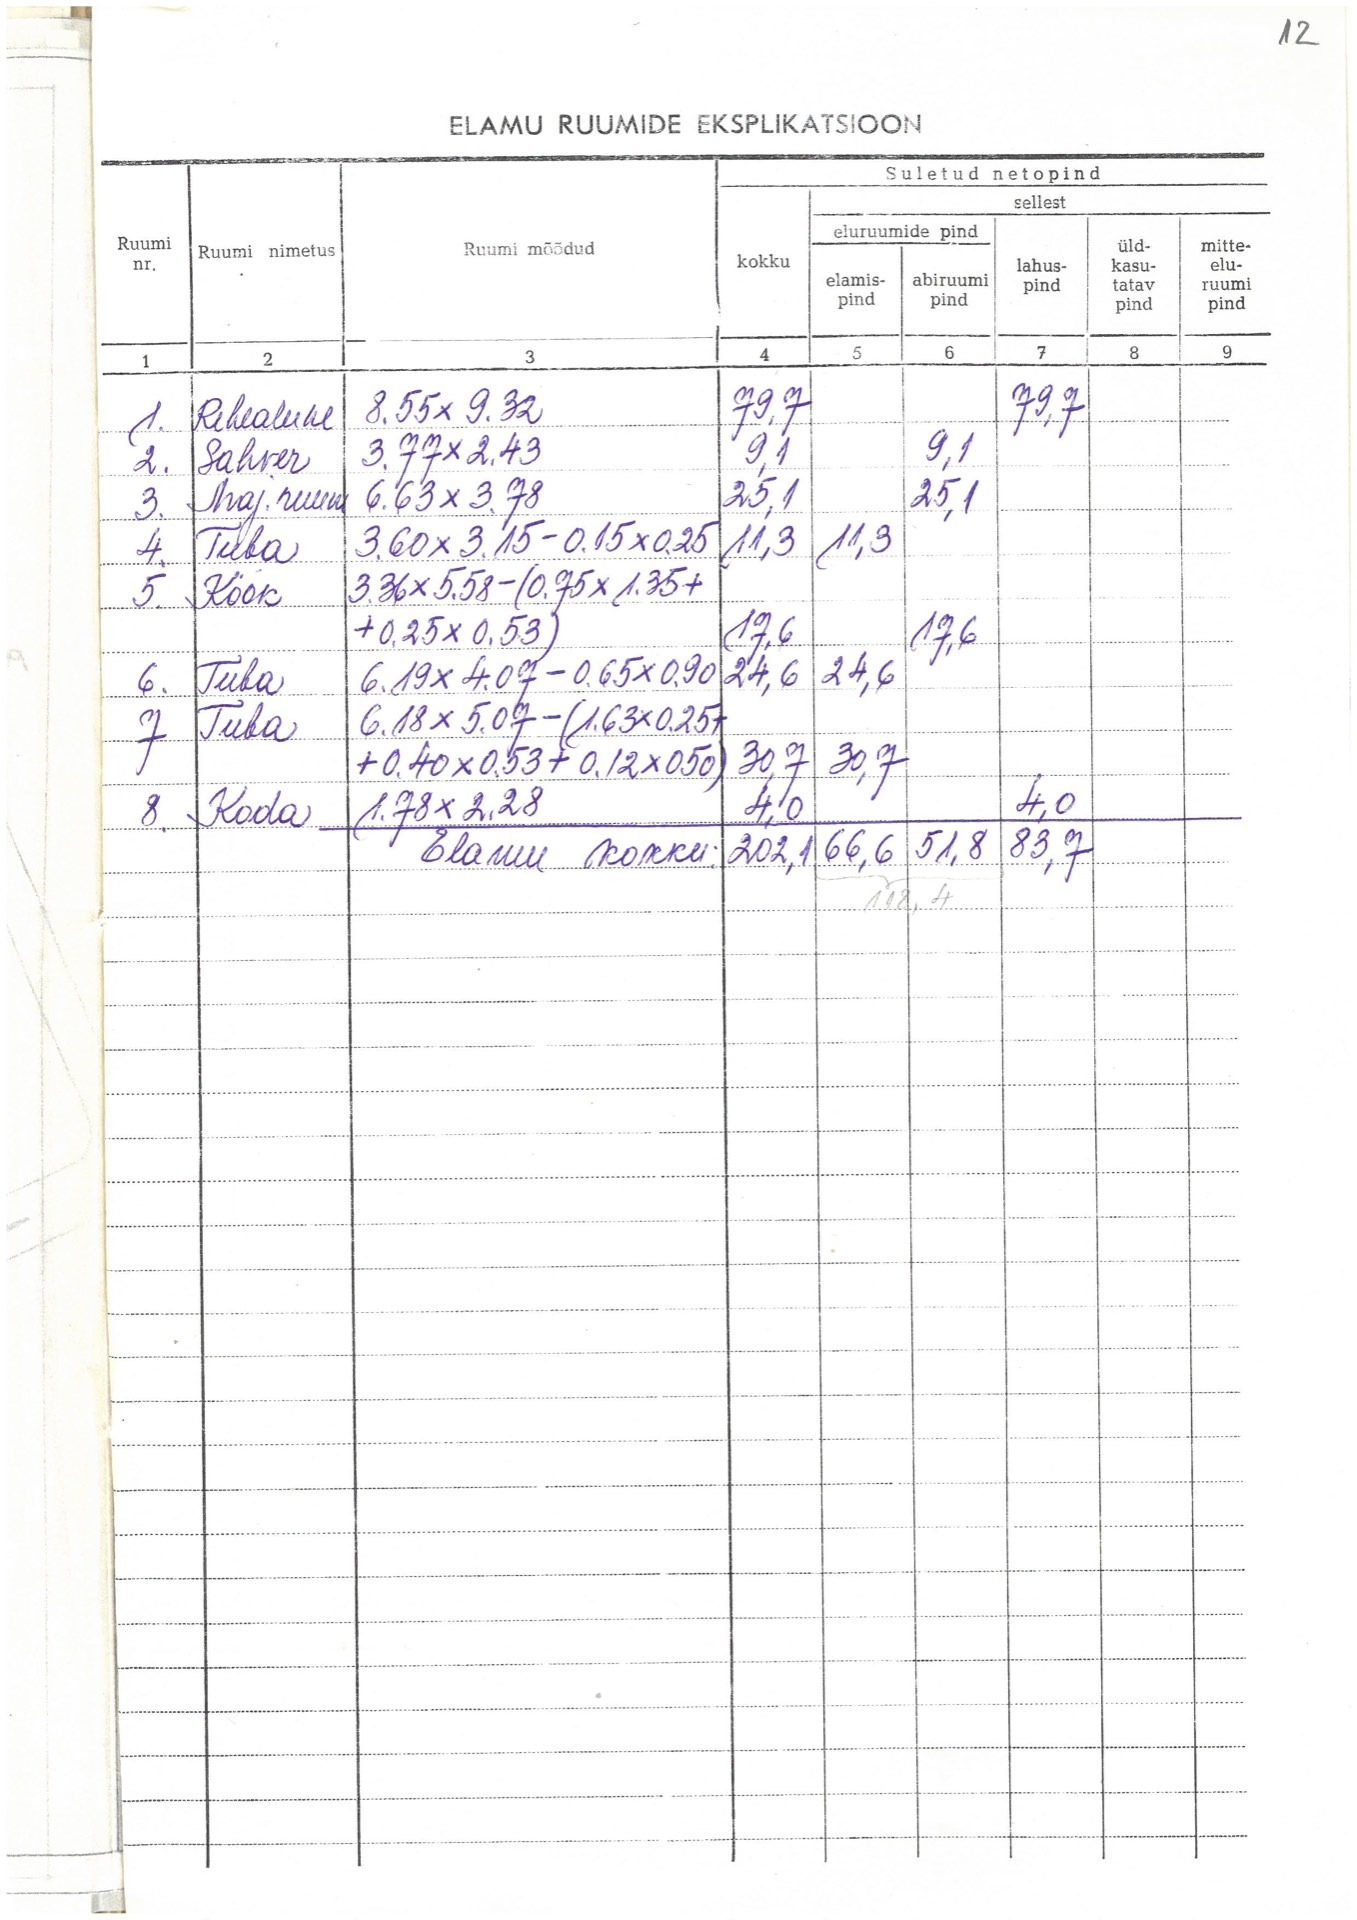 12
ELAMU RUUMIDE EKSPLIKATSIOON
Ruumi nr.
Ruumi nimetus
Ruumi mõõdud
Suletud netopind
kokku
sellest
eluruumide pind
elamis-
pind
abiruumi
pind
lahus-
pind
üld-
kasu-
tatav
pind
mitte-
elu-
ruumi
pind
1 2 3 4 5 6 7 8 9
1. Rehealune 8.55 x 9.32 79,7 79,7
2. Sahver 3.77 x 2.43 9,1 9,1
3. Maj. ruum 6.63 x 3.78 25,1 25,1
4. Tuba 3.60 x 3.15 - 0.15 x 0.25 11,3 11,3
5. Köök 3.36 x 5.58 - (0.75 x 1.35 +
+ 0.25 x 0.53) 17,6 17,6
6. Tuba 6.19 x 4.07 - 0.65 x 0.90 24,6 24,6
7 Tuba 6.18 x 5.07 - (1.63 x 0.25 +
+ 0.40 x 0.53 + 0.12 x 0.50) 30,7 30,7
8. Koda 1.78 x 2.28 4,0 4,0
Elamu kokku: 202,1 66,6 51,8 83,7
118,4